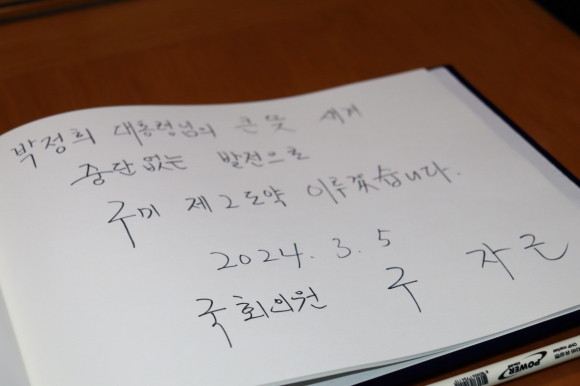 박정희 대통령님의 큰 뜻 새겨
중단없는 발전으로
구미 제2도약 이루겠습니다.
2024. 3. 5
국회의원 구 자 근
POWER